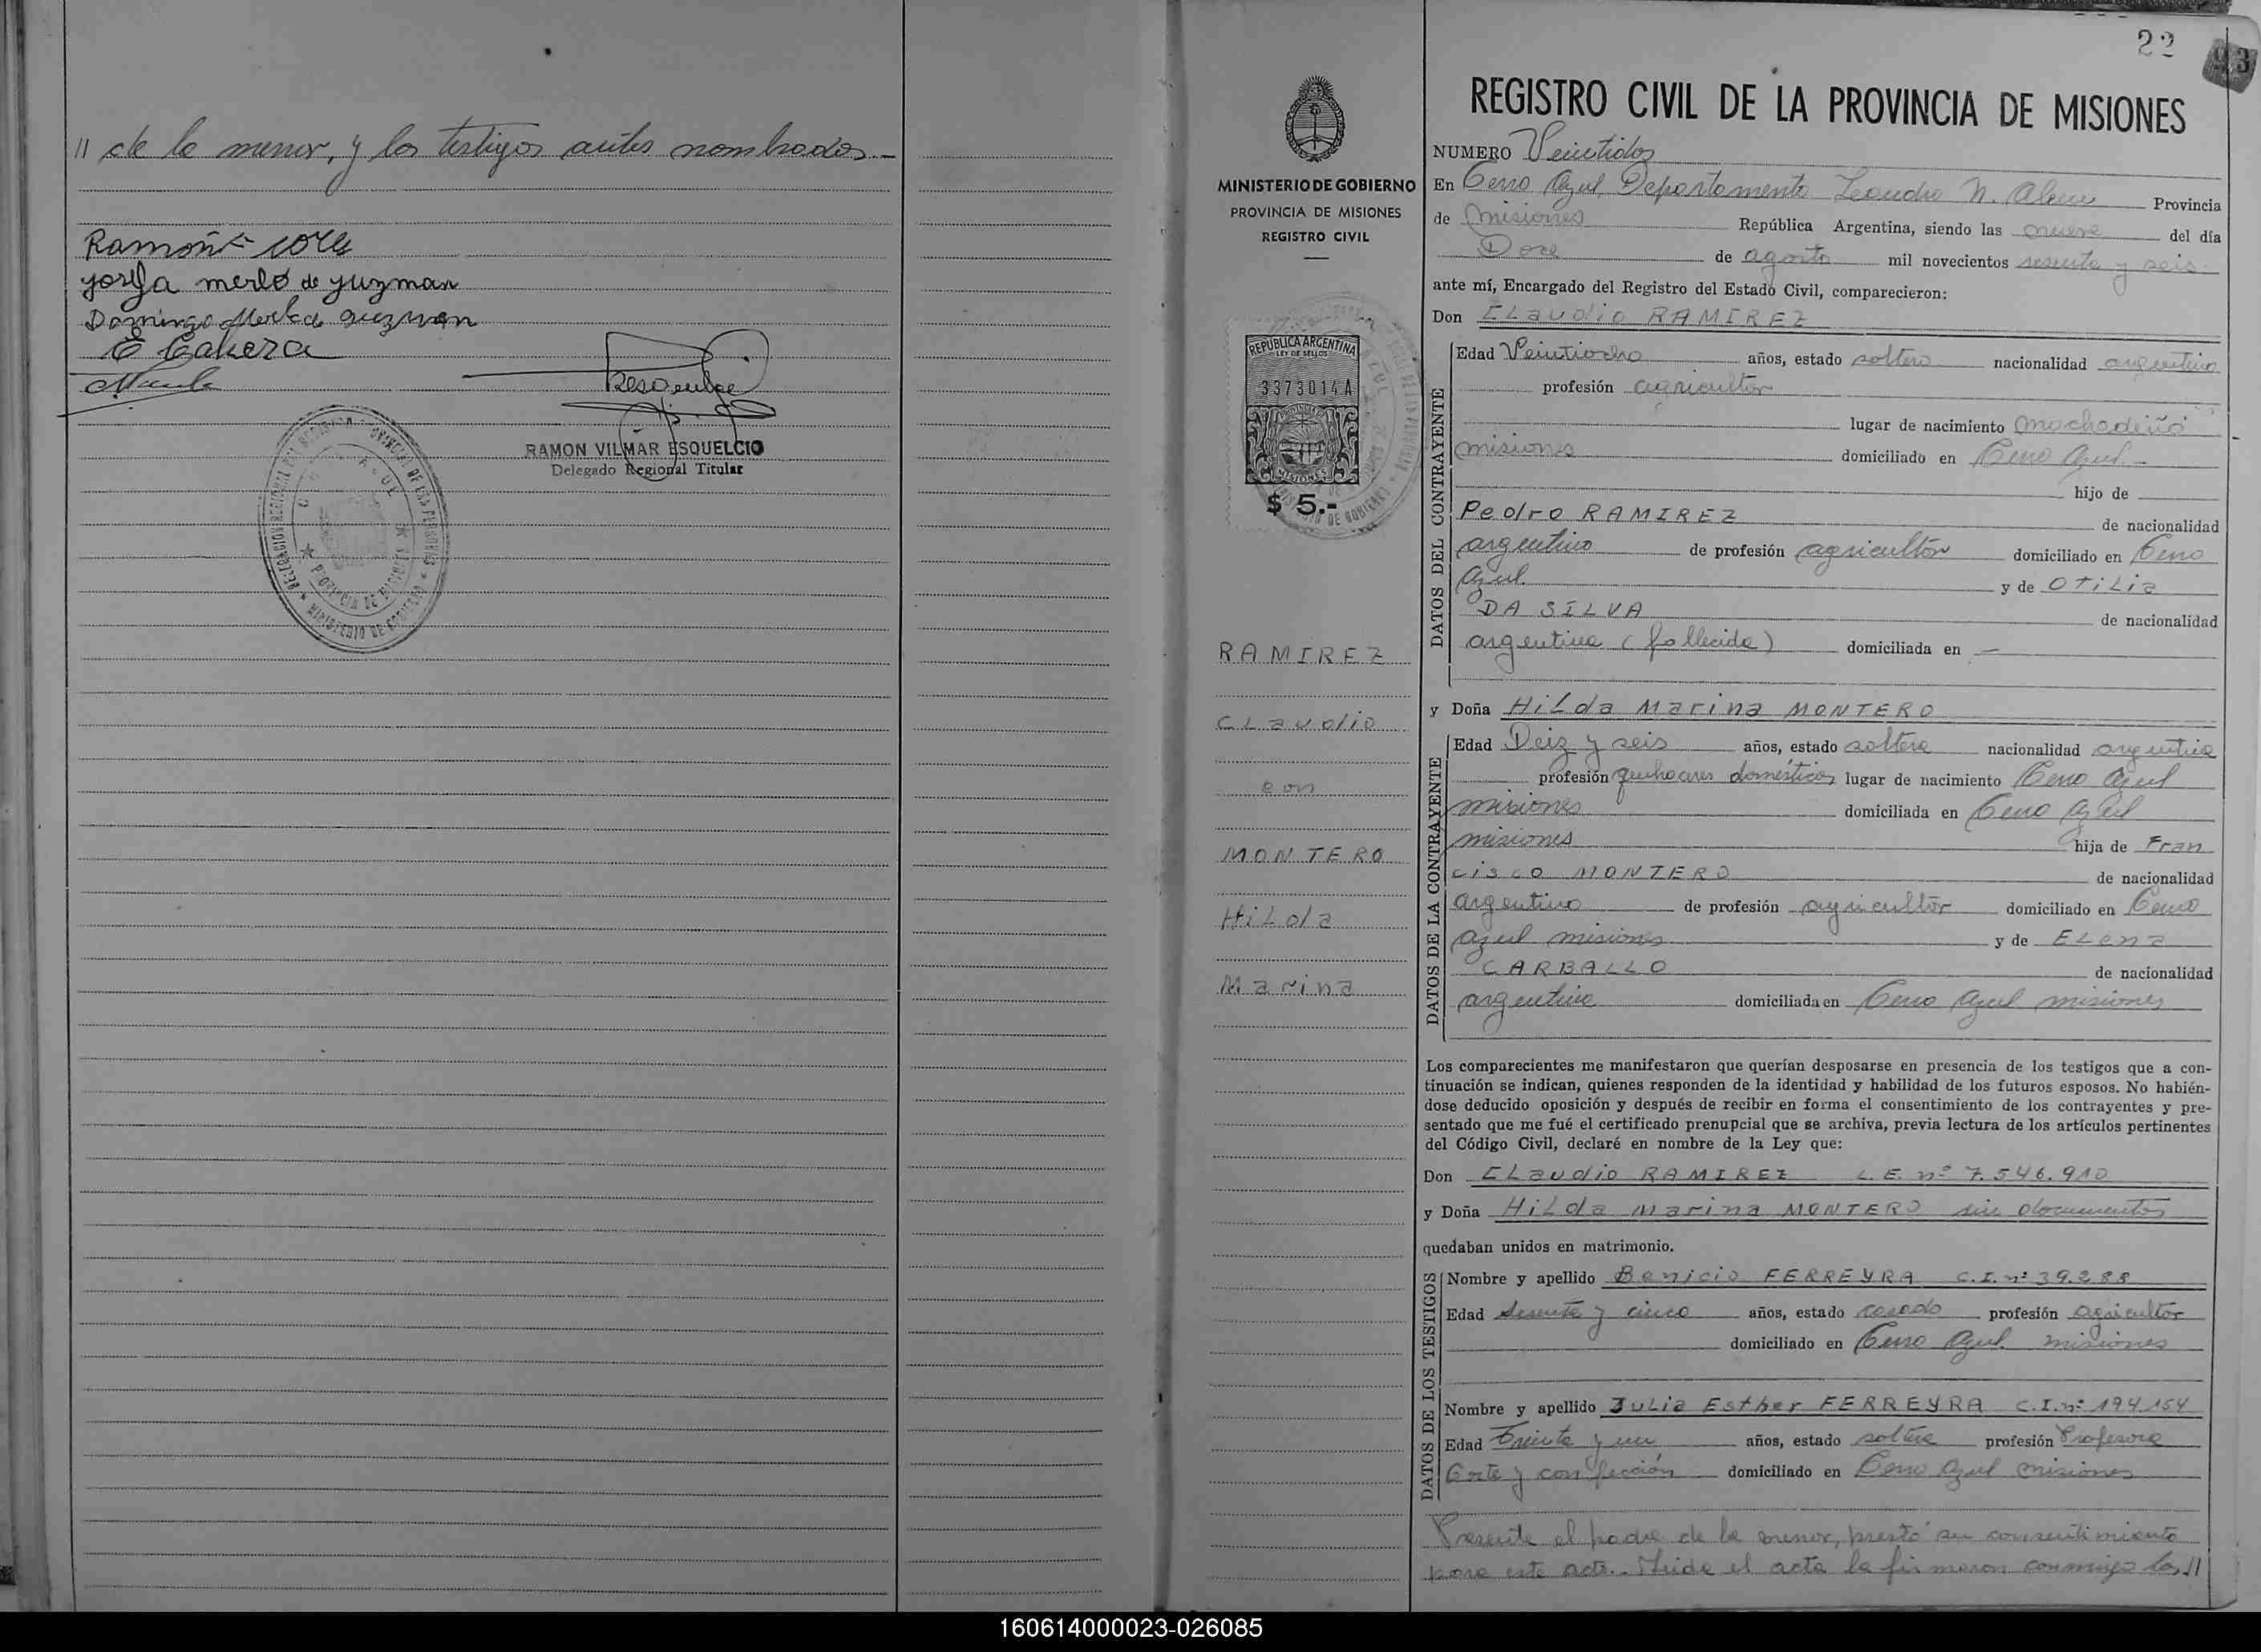 // de la menor, y los testigos antes nombrados.-
Josefa merlo de guzman
Domingo Merlo de guzman
E Cabezas
RAMON VILMAR ESQUELCIO
Delegado Regional Titular
22
93
REGISTRO CIVIL DE LA PROVINCIA DE MISIONES
MINISTERIO DE GOBIERNO
PROVINCIA DE MISIONES
REGISTRO CIVIL
REPUBLICA ARGENTINA
LEY DE SELLOS
3373014A
MISIONES
$ 5.-
RAMIREZ
CLaudio
con
MONTERO
HiLda
Marina
NUMERO Veintidos
En Cerro Azul, Departamento Leandro N. Alem Provincia
de Misiones República Argentina, siendo las nueve del día
Doce de agosto mil novecientos sesenta y seis
ante mí, Encargado del Registro del Estado Civil, comparecieron:
Don CLaudio RAMIREZ
DATOS DEL CONTRAYENTE
Edad Veintiocho años, estado soltero nacionalidad argentino
profesión agricultor
lugar de nacimiento Mochadiño
misiones domiciliado en Cerro Azul.-
hijo de
Pedro RAMIREZ de nacionalidad
argentino de profesión agricultor domiciliado en Cerro
Azul y de OtiLia
DA SILVA de nacionalidad
argentina (fallecida) domiciliada en —
y Doña HiLda Marina MONTERO
DATOS DE LA CONTRAYENTE
Edad Deiz y seis años, estado soltera nacionalidad argentina
profesión quehaceres domésticos lugar de nacimiento Cerro Azul
misiones domiciliada en Cerro Azul
misiones hija de Fran
cisco MONTERO de nacionalidad
argentino de profesión agricultor domiciliado en Cerro
Azul misiones y de ELena
CARBALLO de nacionalidad
argentina domiciliada en Cerro Azul misiones
Los comparecientes me manifestaron que querían desposarse en presencia de los testigos que a con-
tinuación se indican, quienes responden de la identidad y habilidad de los futuros esposos. No habién-
dose deducido oposición y después de recibir en forma el consentimiento de los contrayentes y pre-
sentado que me fué el certificado prenupcial que se archiva, previa lectura de los artículos pertinentes
del Código Civil, declaré en nombre de la Ley que:
Don CLaudio RAMIREZ L.E. nº 7.546.910
y Doña HiLda Marina MONTERO sin documentos
quedaban unidos en matrimonio.
DATOS DE LOS TESTIGOS
Nombre y apellido Benicio FERREYRA C.I. nº 39.288
Edad Sesenta y cinco años, estado casado profesión agricultor
domiciliado en Cerro Azul misiones
Nombre y apellido JuLia Esther FERREYRA C.I. nº 194154
Edad Treinta y un años, estado soltera profesión Profesora
Corte y confección domiciliado en Cerro Azul misiones
Presente el padre de la menor, prestó su consentimiento
para este acto.- Leida el acta la firmaron conmigo los //
160614000023-026085